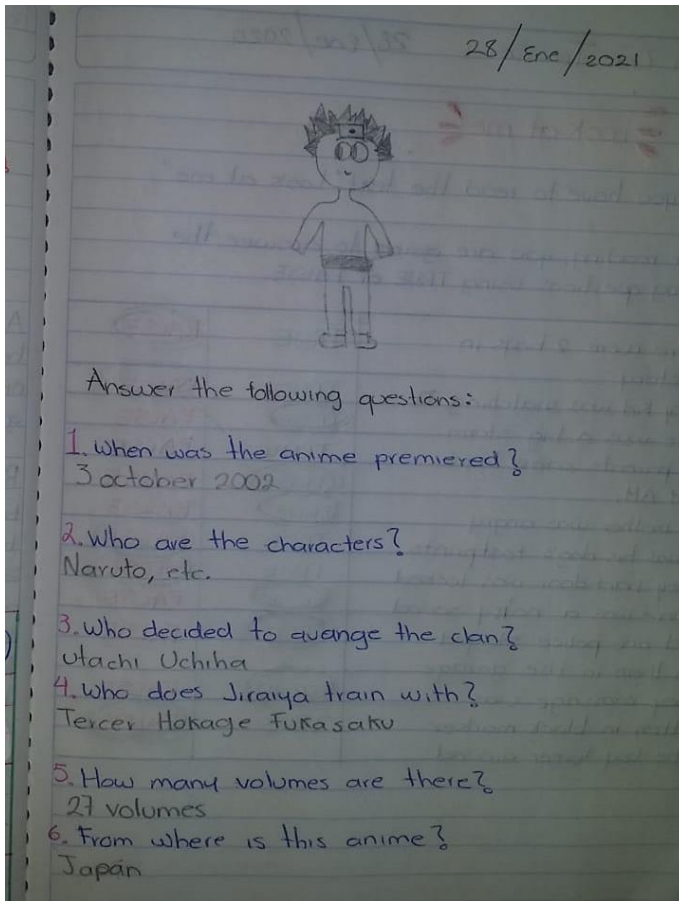 28/Ene/2021
Answer the following questions:
1. When was the anime premiered?
3 october 2002
2. Who are the characters?
Naruto, etc.
3. Who decided to avange the clan?
Utachi Uchiha
4. Who does Jiraiya train with?
Tercer Hokage Fukasaku
5. How many volumes are there?
27 volumes
6. From where is this anime?
Japán